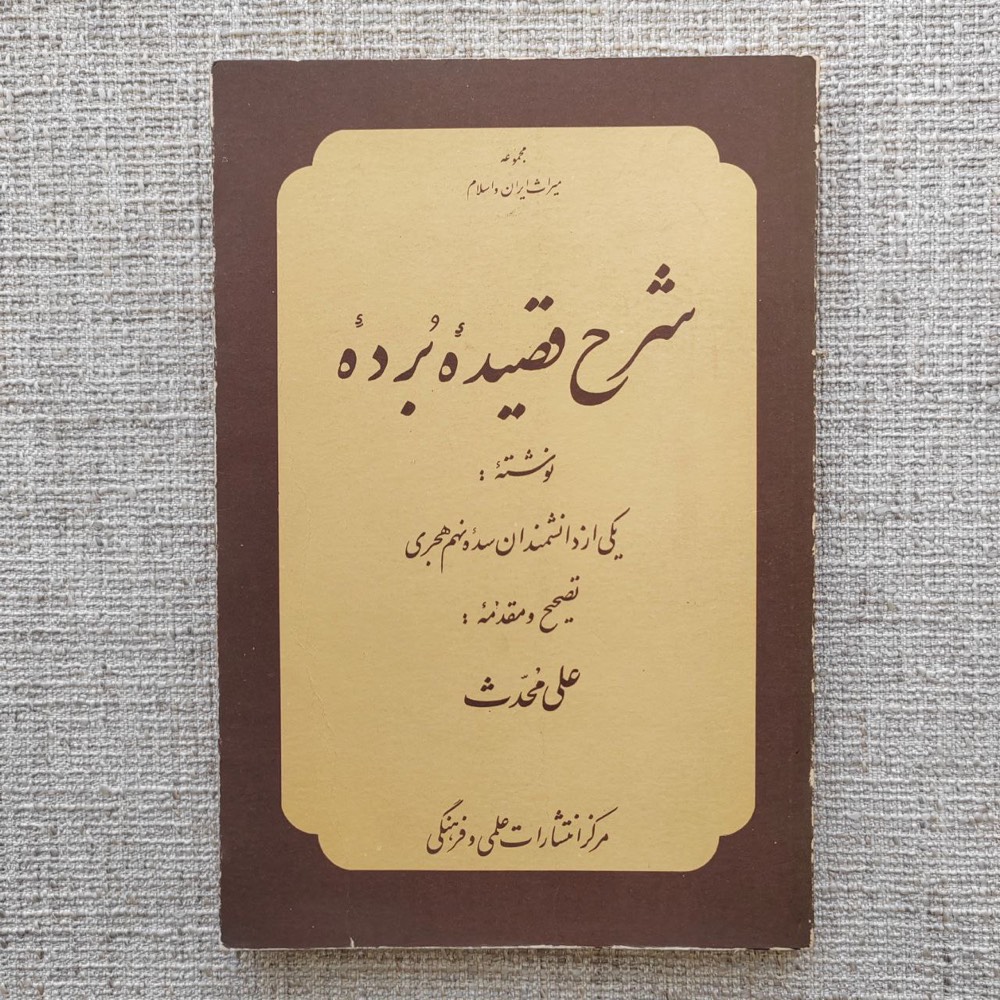 مجموعه
میراث ایران و اسلام
شرح قصیدهٔ بُردهٔ
نوشتهٔ :
یکی از دانشمندان سدهٔ نهم هجری
تصحیح و مقدمهٔ :
علی مُحدّث
مرکز انتشارات علمی و فرهنگی